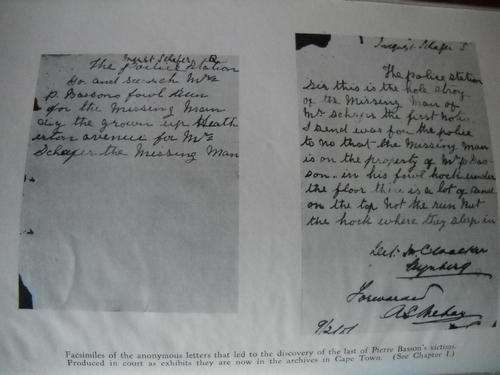 Inquest Schafer B
The police station
Go and search Mrs
P. Bassons fowl
for the Missing Man
dig the grown up Heath
erton avenue for Mrs
Schafer the Missing Man
Inquest Schafer
The police station
Sir this is the hole
of the Missing Man of
Mr Schafer the first
I send was for the police
to no that the Missing Man
is on the property of Mr P Bas
son. in his fowl hock under
the floor there is a lot of sand
on the top Not the run but
the hock where they sleep in
Wynberg
Forwarded
9/2/07
Facsimiles of the anonymous letters that led to the discovery of the last of Pierre Basson's victims.
Produced in court as exhibits they are now in the archives in Cape Town. (See Chapter I.)